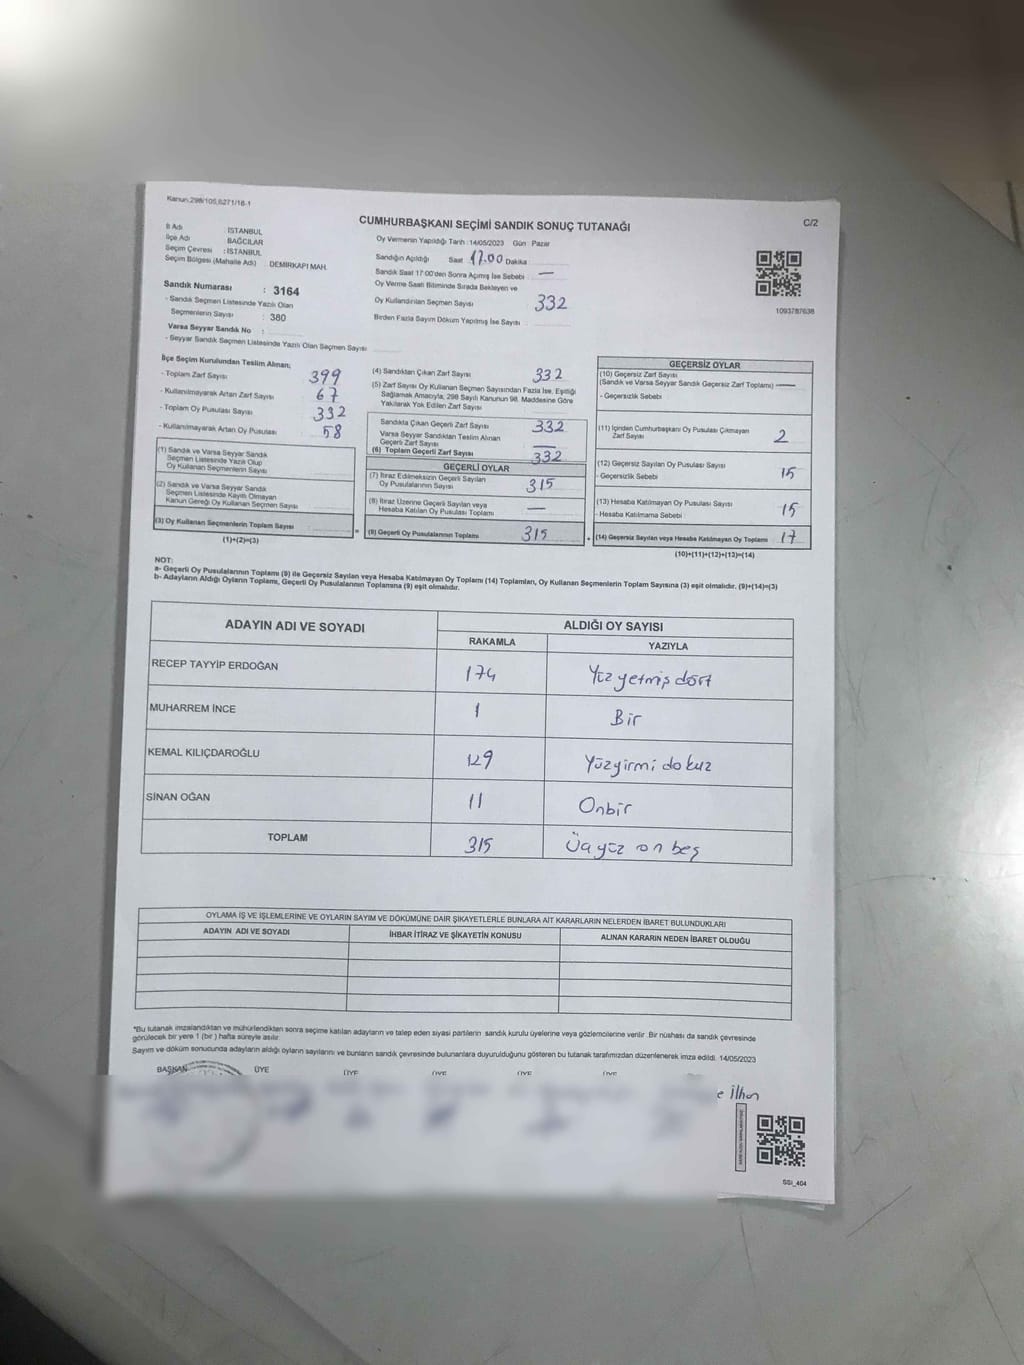 Kanun,298/105,6271/16-1
C/2
CUMHURBAŞKANI SEÇİMİ SANDIK SONUÇ TUTANAĞI
İl Adı : İSTANBUL
İlçe Adı : BAĞCILAR
Seçim Çevresi : İSTANBUL
Seçim Bölgesi (Mahalle Adı) : DEMİRKAPI MAH.
Oy Vermenin Yapıldığı Tarih :14/05/2023 Gün : Pazar
Sandığın Açıldığı Saat 17.00 Dakika
Sandık Saat 17:00'den Sonra Açılmış İse Sebebi : —
Oy Verme Saati Bitiminde Sırada Bekleyen ve
Oy Kullandırılan Seçmen Sayısı 332
Birden Fazla Sayım Döküm Yapılmış İse Sayısı :
1093787638
Sandık Numarası : 3164
- Sandık Seçmen Listesinde Yazılı Olan
Seçmenlerin Sayısı : 380
Varsa Seyyar Sandık No :
- Seyyar Sandık Seçmen Listesinde Yazılı Olan Seçmen Sayısı
İlçe Seçim Kurulundan Teslim Alınan;
- Toplam Zarf Sayısı 399
- Kullanılmayarak Artan Zarf Sayısı 67
- Toplam Oy Pusulası Sayısı 332
- Kullanılmayarak Artan Oy Pusulası 58
(1) Sandık ve Varsa Seyyar Sandık
Seçmen Listesinde Yazılı Olup
Oy Kullanan Seçmenlerin Sayısı
(2) Sandık ve Varsa Seyyar Sandık
Seçmen Listesinde Kayıtlı Olmayan
Kanun Gereği Oy Kullanan Seçmen Sayısı
(3) Oy Kullanan Seçmenlerin Toplam Sayısı
(1)+(2)=(3)
(4) Sandıktan Çıkan Zarf Sayısı 332
(5) Zarf Sayısı Oy Kullanan Seçmen Sayısından Fazla İse, Eşitliği
Sağlamak Amacıyla, 298 Sayılı Kanunun 98. Maddesine Göre
Yakılarak Yok Edilen Zarf Sayısı
Sandıkta Çıkan Geçerli Zarf Sayısı 332
Varsa Seyyar Sandıktan Teslim Alınan
Geçerli Zarf Sayısı —
(6) Toplam Geçerli Zarf Sayısı 332
GEÇERLİ OYLAR
(7) İtiraz Edilmeksizin Geçerli Sayılan
Oy Pusulalarının Sayısı 315
(8) İtiraz Üzerine Geçerli Sayılan veya
Hesaba Katılan Oy Pusulası Toplamı —
= (9) Geçerli Oy Pusulalarının Toplamı 315
GEÇERSİZ OYLAR
(10) Geçersiz Zarf Sayısı
(Sandık ve Varsa Seyyar Sandık Geçersiz Zarf Toplamı) —
- Geçersizlik Sebebi
(11) İçinden Cumhurbaşkanı Oy Pusulası Çıkmayan
Zarf Sayısı 2
(12) Geçersiz Sayılan Oy Pusulası Sayısı 15
- Geçersizlik Sebebi
(13) Hesaba Katılmayan Oy Pusulası Sayısı 15
- Hesaba Katılmama Sebebi
+ (14) Geçersiz Sayılan veya Hesaba Katılmayan Oy Toplamı 17
(10)+(11)+(12)+(13)=(14)
NOT:
a- Geçerli Oy Pusulalarının Toplamı (9) ile Geçersiz Sayılan veya Hesaba Katılmayan Oy Toplamı (14) Toplamları, Oy Kullanan Seçmenlerin Toplam Sayısına (3) eşit olmalıdır. (9)+(14)=(3)
b- Adayların Aldığı Oyların Toplamı, Geçerli Oy Pusulalarının Toplamına (9) eşit olmalıdır.
ADAYIN ADI VE SOYADI
ALDIĞI OY SAYISI
RAKAMLA YAZIYLA
RECEP TAYYİP ERDOĞAN 174 Yüz yetmiş dört
MUHARREM İNCE 1 Bir
KEMAL KILIÇDAROĞLU 129 Yüzyirmi dokuz
SİNAN OĞAN 11 Onbir
TOPLAM 315 Üçyüz on beş
OYLAMA İŞ VE İŞLEMLERİNE VE OYLARIN SAYIM VE DÖKÜMÜNE DAİR ŞİKAYETLERLE BUNLARA AİT KARARLARIN NELERDEN İBARET BULUNDUKLARI
ADAYIN ADI VE SOYADI İHBAR İTİRAZ VE ŞİKAYETİN KONUSU ALINAN KARARIN NEDEN İBARET OLDUĞU
*Bu tutanak imzalandıktan ve mühürlendikten sonra seçime katılan adayların ve talep eden siyasi partilerin sandık kurulu üyelerine veya gözlemcilerine verilir. Bir nüshası da sandık çevresinde
görülecek bir yere 1 (bir) hafta süreyle asılır.
Sayım ve döküm sonucunda adayların aldığı oyların sayılarını ve bunların sandık çevresinde bulunanlara duyurulduğunu gösteren bu tutanak tarafımızdan düzenlenerek imza edildi. 14/05/2023
BAŞKAN ÜYE ÜYE ÜYE ÜYE ÜYE
e İlhan
SSI_404